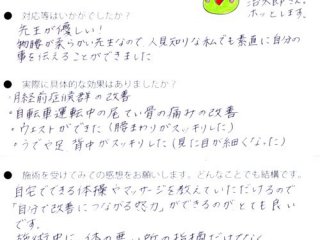 ● 対応等はいかがでしたか？
先生が優しい！
物腰が柔らかい先生なので人見知りな私でも素直に自分の
事を伝えることができました
ホッとします。
● 実際に具体的な効果はありましたか？
・月経前症候群の改善
・自転車運転中の尾てい骨の痛みの改善
・ウエストができた（腰まわりがスッキリした）
・うでや足 背中がスッキリした（見た目が細くなった）
● 施術を受けてみての感想をお願いします。どんなことでも結構です。
自宅でできる体操やマッサージを教えていただけるので
「自分で改善につながる努力」ができるのがとても良い
です。